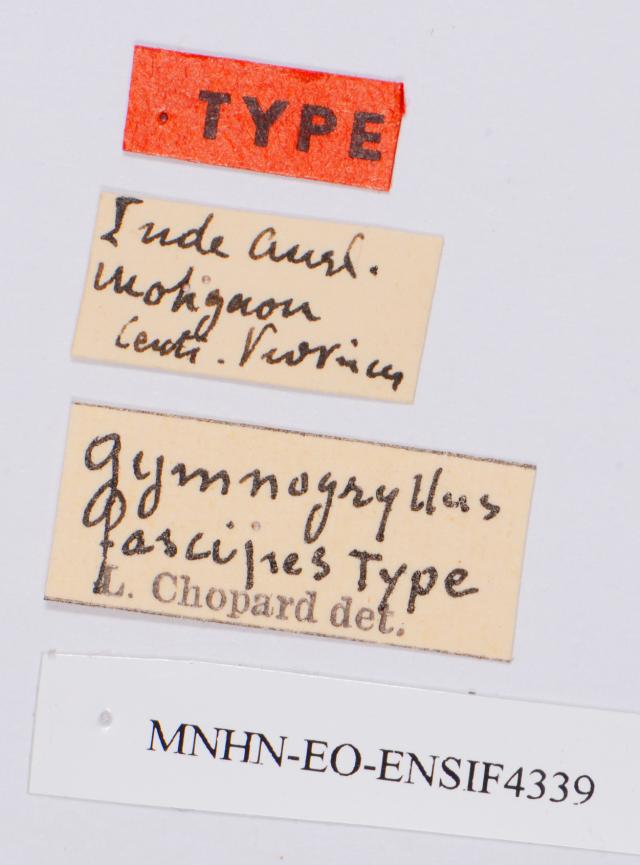 TYPE
Inde Angl.
Mohgaon
Centr. Provinces
gymnogryllus
fascipes Type
L. Chopard det.
MNHN-EO-ENSIF4339